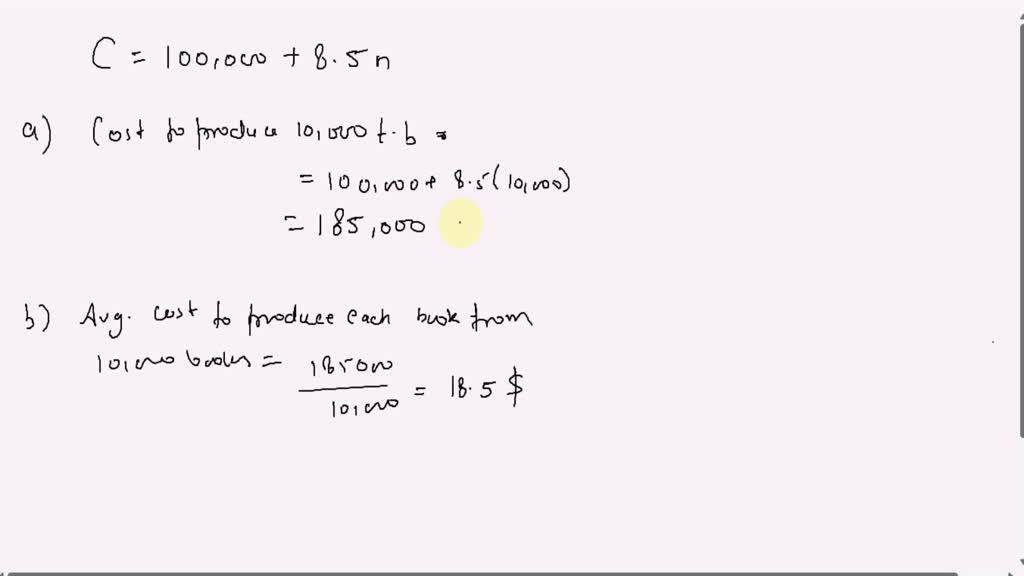 C = 100,000 + 8.5 n
a) Cost to produce 10,000 t.b =
= 100,000 + 8.5(10,000)
= 185,000
b) Avg. cost to produce each book from
10,000 books = 185000 / 10,000 = 18.5 $